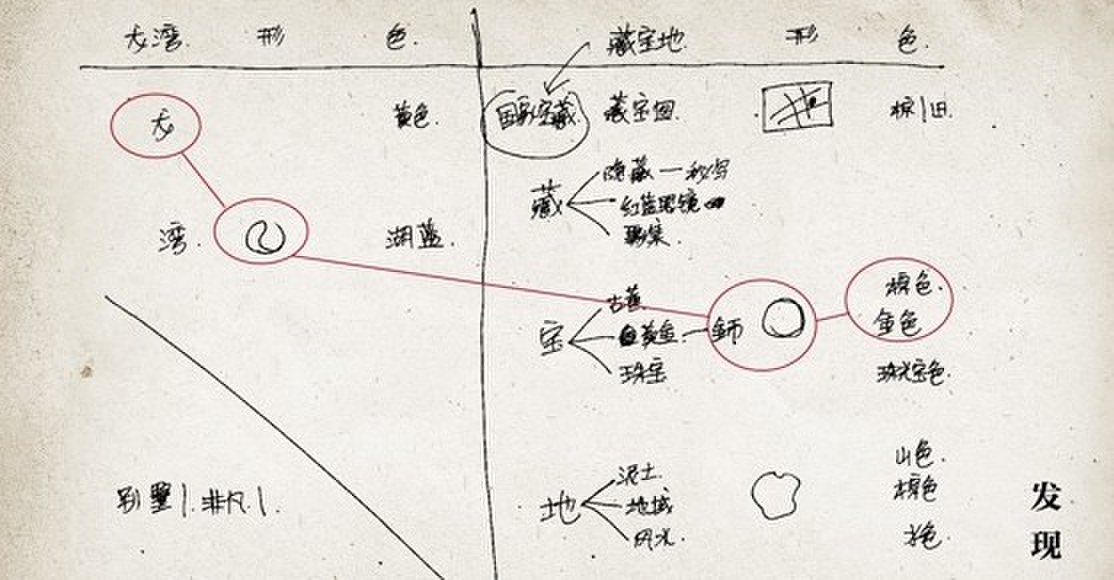 大湾. 形 色. 藏宝地. 形 色.
大 黄色. 国家宝藏. 藏宝图. 棕|旧.
藏 隐藏一秒字
红蓝眼镜
湾. 湖蓝. 聚集.
古董. 棕色.
宝 黄金. 金币 金色
珠宝 珠光宝色.
山色.
泥土. 棕色
别墅|.非凡|. 地 地域
风光. 水色.
发
现